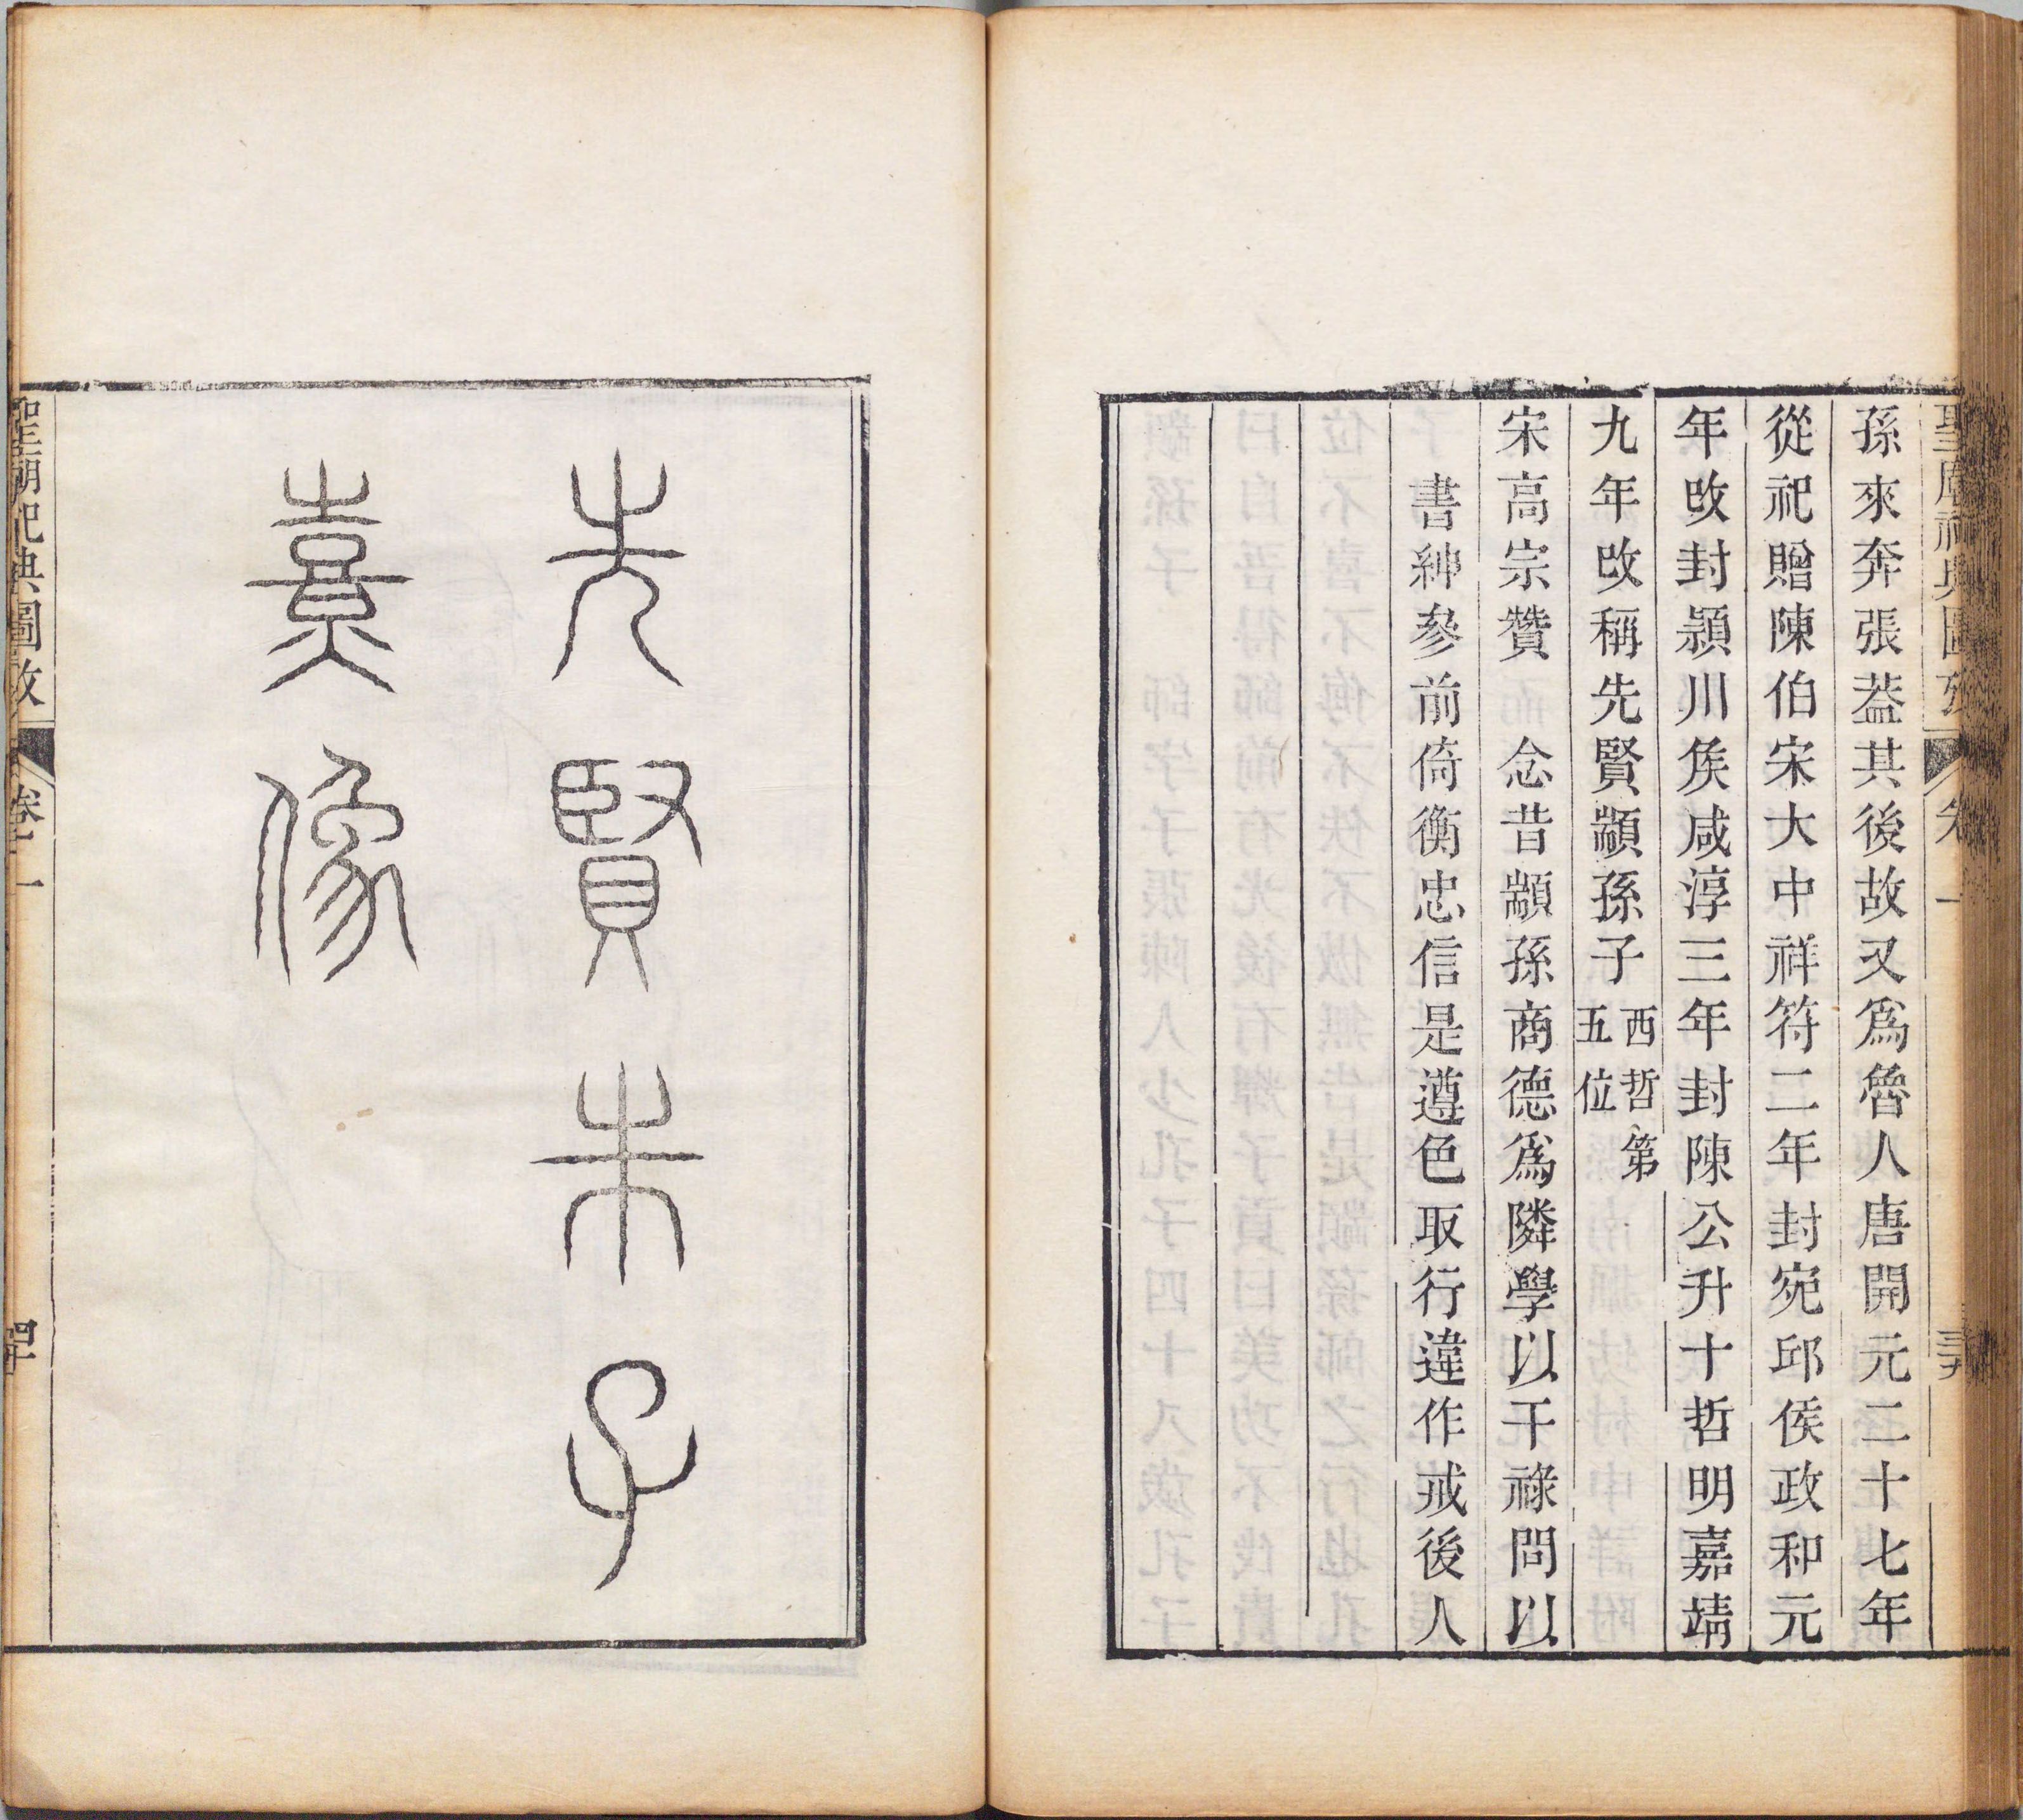 聖廟祀典圖攷 卷一 三九
孫來奔張葢其後故又爲魯人唐開元二十七年
從祀贈陳伯宋大中祥符二年封宛邱侯政和元
年改封潁川矦咸淳三年封陳公升十哲明嘉靖
九年改稱先賢顓孫子西哲第五位
宋高宗贊 念昔顓孫商德爲隣學以干祿問以
書紳參前倚衡忠信是遵色取行違作戒後人
先賢朱子
熹像
聖廟祀典圖攷 卷一 四十